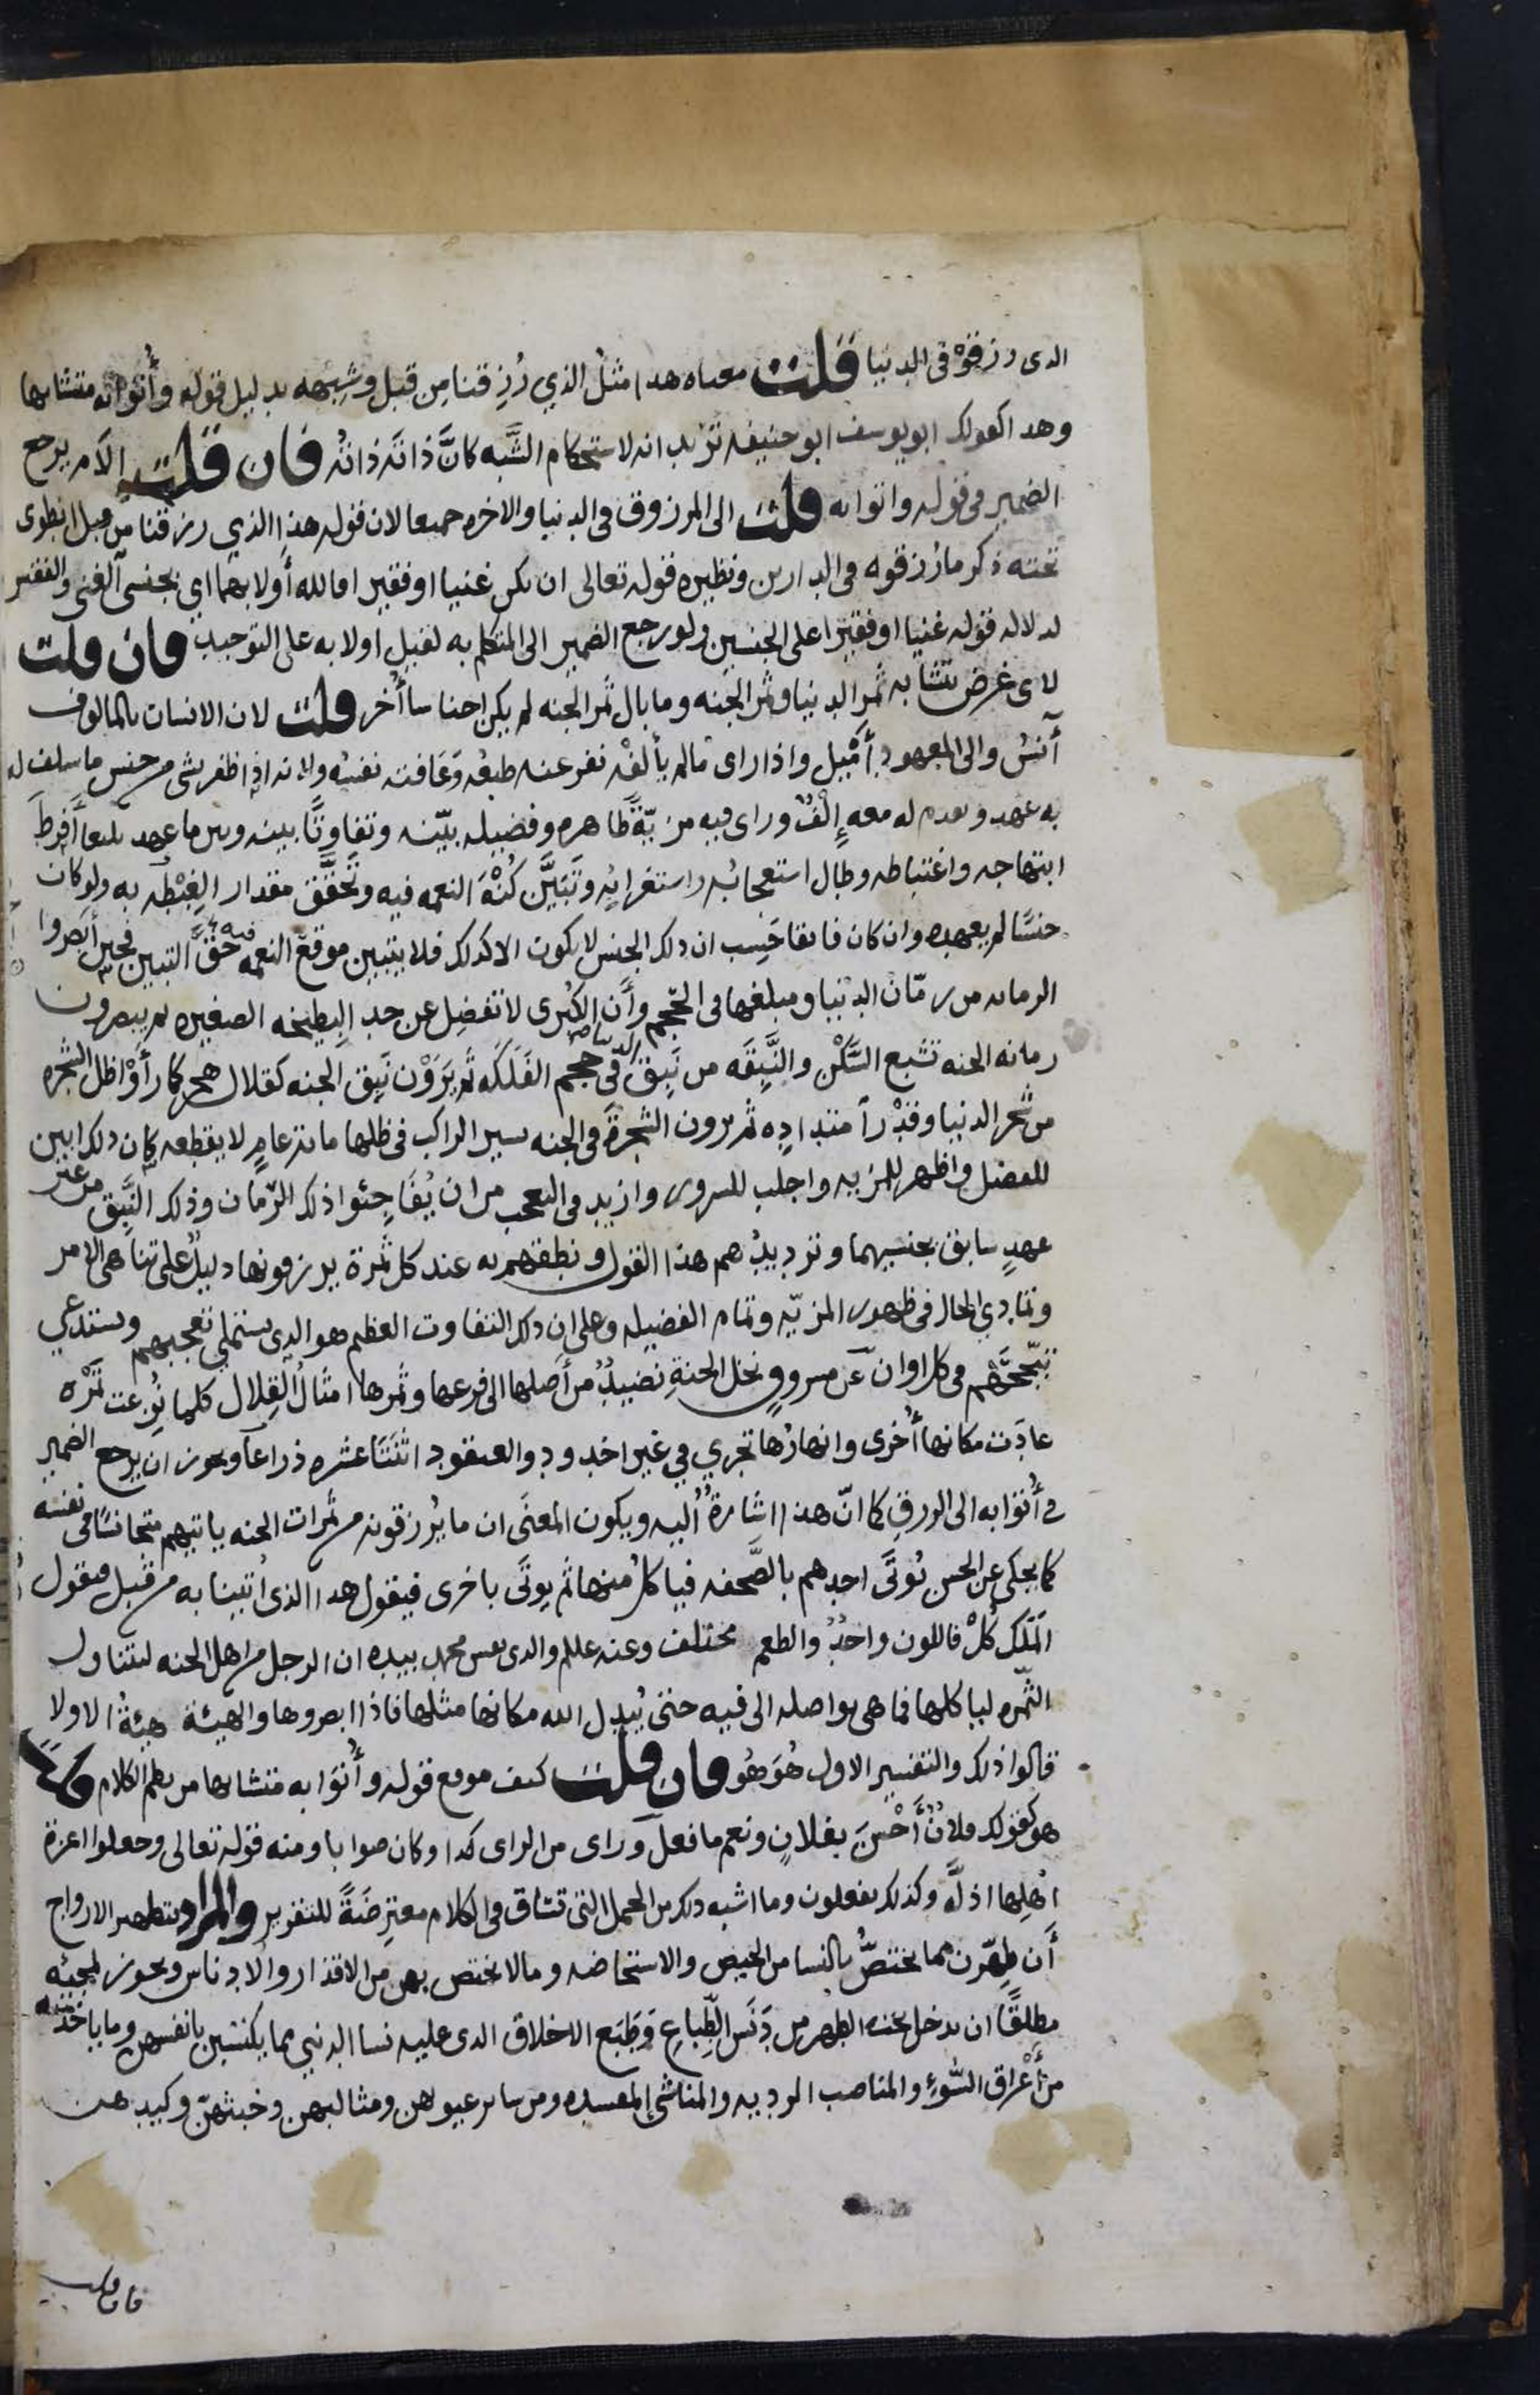 الدى رزقوْه فى الدنيا قَلت معناه هذا مثلُ الذي رُزِقنا مِن قبل وشِبهه بدليل قوله وأُتُوا به متشابها
وهدا كقولك ابو يوسف ابو حنيفه تريد انه لاستحكام الشَّبه كانَّ ذاتَه ذاتُه فان قَلت الاَم يرجع
الضمير فى قوله واتوا به قلت الى المرزوق فى الدنيا والاخره جميعا لان قوله هذا الذي رزقنا من قبل انطوى
تحته ذكر ما رُزقوه فى الدارين ونظيره قوله تعالى ان يكن غنيا او فقيرا فالله أولا بهما اي بجنسى الغنى والفقير
لدلاله قوله غنيا او فقيرا على الجنسين ولو رجع الضمير الى المتكلم به لقيل أولا به على التوحيد فان قلت
لاى غرض تشابه ثمر الدنيا وثمر الجنه وما بال ثمر الجنه لم يكن اجناسا أُخر قلت لان الانسان بالمالوف
أنسُ والى المعهود أمْيل واذا راى مالم يألفْه نفر عنه طبعُه وَعَافته نفسُه ولانه اذا ظفر بشى من جنس ما سلف له
به عهد وتقدم له معه إِلْفٌ وراى فيه مزيّةً ظاهره وفضيله بيّنه وتفاوتًا بينه وبين ما عهد بليغا أَفرطَ
ابتهاجه واغتباطه وطال استعجابُه واستغرابُه وتَبَيَّن كُنْهَ النعمه فيه وتَحقَّق مقدار الغِبْطه به ولو كان
جنسًا لم يعهده وان كان فايقا حَسِب ان ذلك الجنس لا يكون الا كذلك فلا يتبين موقع النعمه فيه حقَّ التبين فحين أبصَروا
الرمانه من رمّان الدنيا ومبلغها فى الحَجم وأَن الكُبرى لا تفضل عن حد البِطيخه الصغيره ثم يبصرون
رمانه الجنه تشبع السَّكْن والنَّبِقَه من نَبِق الدنيا فى حجم الفَلَكه ثم يَرَوْن نَبِق الجنه كقلال هجر كما رأَوْا ظل الشجره
من شجر الدنيا وقدْرَ امتدادِه ثم يرون الشجرةَ فى الجنه يسير الراكب فى ظلها مايه عامٍ لا يقطعه كان ذلك ابين
للفضل واظهر للمزيه واجلب للسرور وازيد فى التعجب من ان يُفَاجئوا ذلك الرّمان وذلك النَّبِق من غير
عهدٍ سابق بجنسهما وترديدُهم هذا القول ونطقهم به عند كل ثمرة يرزقونها دليلٌ على تناهى الامر
وتمادي الحال فى ظهور المزيّه وتمام الفضيله وعلى ان ذلك التفاوت العظيم هو الذى يستملى تعجبهم ويستدعى
تبجّحَهم فى كل اوان عَن مسروقٍ نخل الجنةِ نضيدٌ من أصلها الى فرعها وثمرها امثالُ القِلال كلما نُزِعت ثمرْه
عادَت مكانها أُخرى وانهارُها تجري في غير اخدود والعنقود اثنَتَا عشره ذراعًا ويجوز ان يرجع الضمير
فى أُتوا به الى الرزقِ كما انّ هذا اشارةٌ اليه ويكون المعنَى ان ما يُرزقونه من ثمرات الجنه ياتيهم متجانسًا فى نفسه
كما يحكى عن الحسن يُوتَى احدهم بالصَّحفه فياكلُ منها ثم يوتَى باخرى فيقول هدا الذى أُتينا به من قبل فيقول
المَلَك كُلْ فاللون واحدٌ والطعم مختلف وعنه علىلم والدى نفس محمد بيده ان الرجل من اهل الجنه ليتناول
الثّمره لياكلها فما هى بواصله الى فيه حتى يُبدِل الله مكانها مثلها فاذا ابصروها والهيئة هيئةُ الاولا
قالوا ذلك والتفسير الاول هُوَ هُو فان قلت كيف موقع قوله وأُتُوا به متشابها من نظم الكلام قلت
هو كقولك فلانٌ أَحْسَنَ بفلانٍ ونعم ما فعل وراى من الراى كدا وكان صوابا ومنه قوله تعالى وجعلوا اعزة
اهلِها اذلَّه وكذلك يفعلون وما اشبه ذلك من الجمل التى تساق فى الكلام معترضَةً للتقرير والمراد بتطهير الازواج
أَن طهّرن مما يختصُّ بالنسا من الحيض والاستحاضه وما لا يختص بهن من الاقذار والادناس ويجوز لمجيئه
مطلقًا ان يدخل تحته الطهر من دَنَس الطِّباع وَطَبَع الاخلاق الدى عليه نسا الدنيى مما يكتسبن بانفسهن ومما ياخذنه
من أَعْراق السُّوءِ والمناصب الرديه والمناشئ المفسده ومن ساير عيوبهن ومثالبهن وخبثهنّ وكيدهن
فان قلت